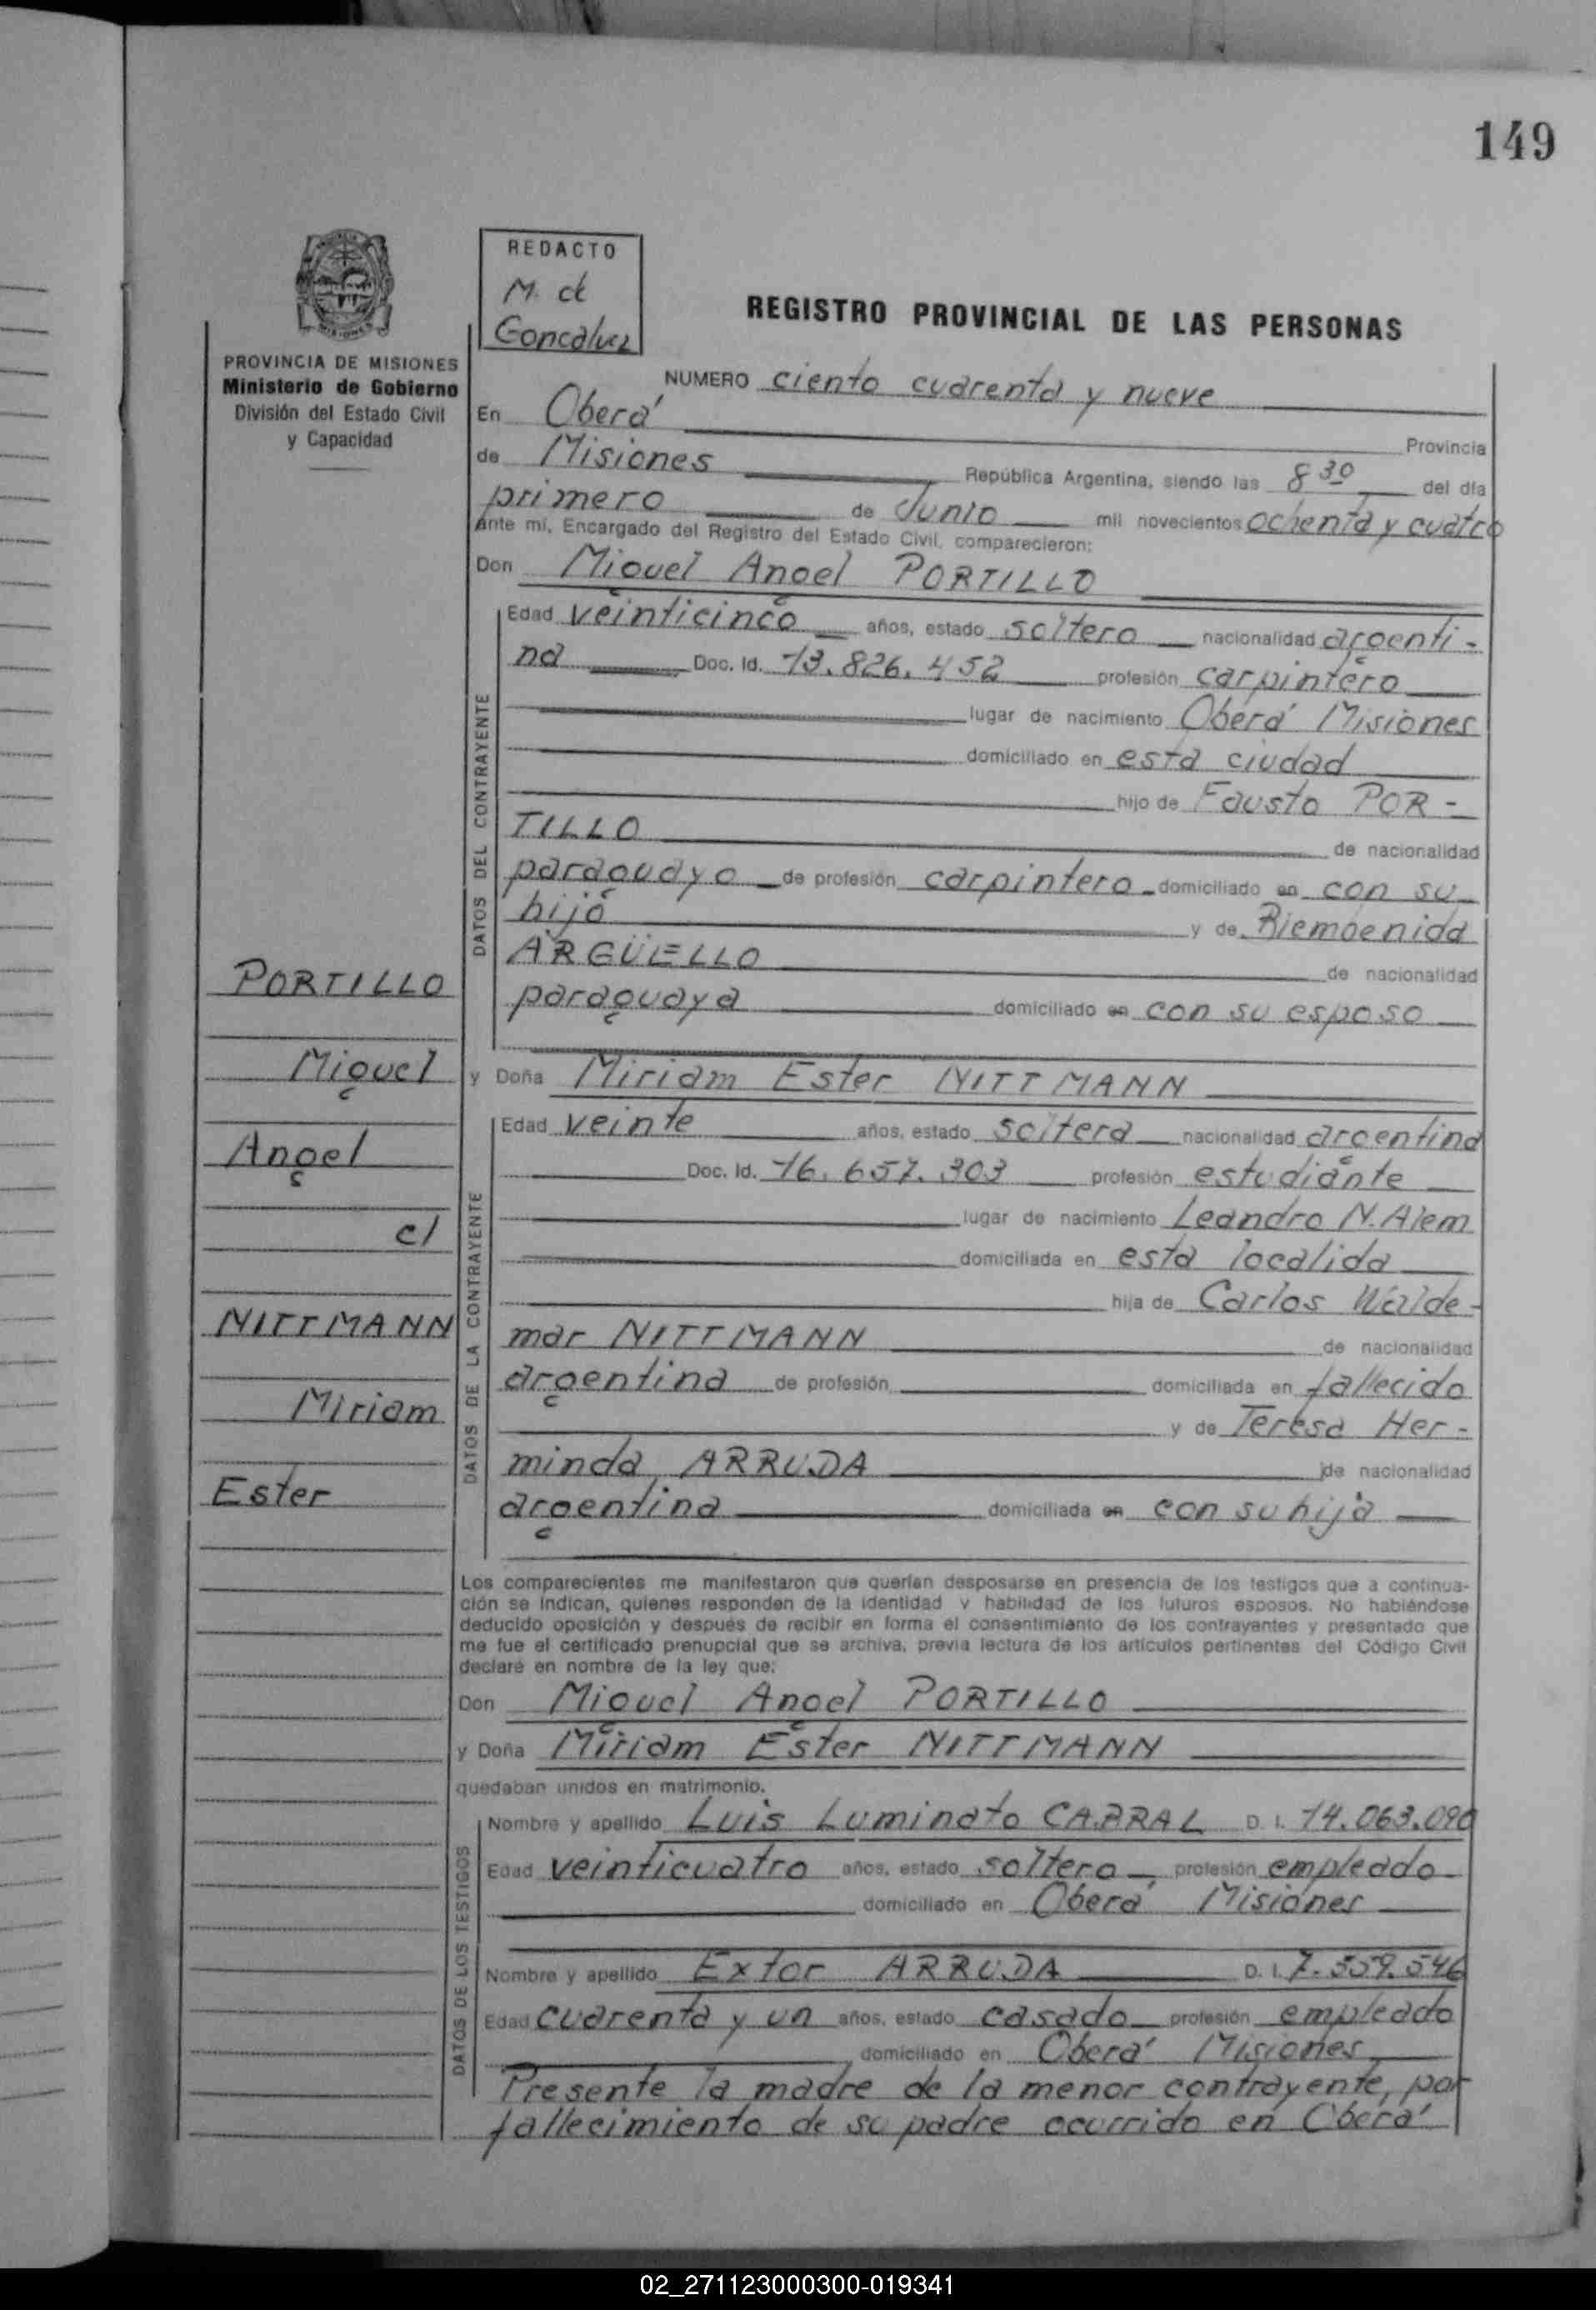 149
REDACTO
M. de
Goncalvez
REGISTRO PROVINCIAL DE LAS PERSONAS
PROVINCIA DE MISIONES
Ministerio de Gobierno
División del Estado Civil
y Capacidad
NUMERO ciento cuarenta y nueve
En Oberá Provincia
de Misiones República Argentina, siendo las 8 30 del día
primero de Junio mil novecientos ochenta y cuatro
Ante mí, Encargado del Registro del Estado Civil, comparecieron:
Don Miguel Angel PORTILLO
DATOS DEL CONTRAYENTE
Edad veinticinco años, estado soltero nacionalidad argenti-
na Doc. Id. 13.826.452 profesión carpintero
lugar de nacimiento Oberá Misiones
domiciliado en esta ciudad
hijo de Fausto POR-
TILLO de nacionalidad
paraguayo de profesión carpintero domiciliado en con su
hijo y de Biembenida
ARGÜELLO de nacionalidad
paraguaya domiciliado en con su esposo
y Doña Miriam Ester NITTMANN
DATOS DE LA CONTRAYENTE
Edad veinte años, estado soltera nacionalidad argentina
Doc. Id. 16.657.303 profesión estudiante
lugar de nacimiento Leandro N. Alem
domiciliada en esta localida
hija de Carlos Walde-
mar NITTMANN de nacionalidad
argentina de profesión domiciliada en fallecido
y de Teresa Her-
minda ARRUDA de nacionalidad
argentina domiciliada en con su hija
PORTILLO
Miguel
Angel
c/
NITTMANN
Miriam
Ester
Los comparecientes me manifestaron que querían desposarse en presencia de los testigos que a continua-
ción se indican, quienes responden de la identidad y habilidad de los futuros esposos. No habiéndose
deducido oposición y después de recibir en forma el consentimiento de los contrayentes y presentado que
me fue el certificado prenupcial que se archiva, previa lectura de los artículos pertinentes del Código Civil
declaré en nombre de la ley que:
Don Miguel Angel PORTILLO
y Doña Miriam Ester NITTMANN
quedaban unidos en matrimonio.
DATOS DE LOS TESTIGOS
Nombre y apellido Luis Luminato CABRAL D. I. 14.063.090
Edad veinticuatro años, estado soltero profesión empleado
domiciliado en Oberá Misiones
Nombre y apellido Extor ARRUDA D. I. 7.559.546
Edad cuarenta y un años, estado casado profesión empleado
domiciliado en Oberá Misiones
Presente la madre de la menor contrayente, por
fallecimiento de su padre ocurrido en Oberá
02_271123000300-019341